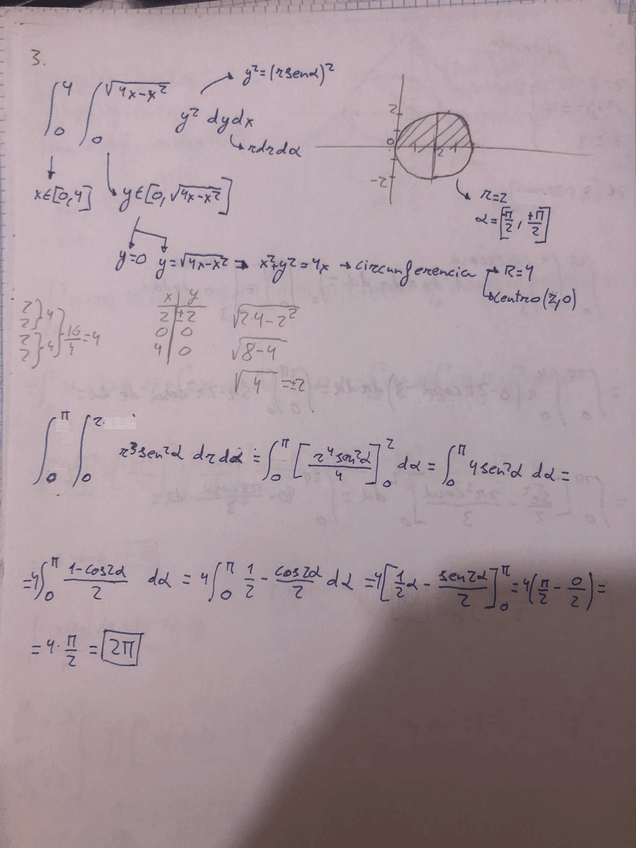 3.
∫₀⁴ ∫₀^√(4x-x²) y² dydx
y²=(rsenα)²
rdrdα
x∈[0,4] y∈[0, √(4x-x²)]
2
0
1 2 1
-2
r=2
α=[π/2, +π/2]
y=0 y=√(4x-x²) ⇒ x²+y²=4x → circunferencia
R=4
centro (2,0)
x | y
2 | ±2
0 | 0
4 | 0
√24-2²
√8-4
√4 = ±2
2 2 } 4
2 2 } 4 } 16/4 = 4
∫₀^π ∫₀² r³sen²α drdα = ∫₀^π [r⁴sen²α/4]₀² dα = ∫₀^π 4sen²α dα =
=4∫₀^π (1-cos2α)/2 dα = 4∫₀^π 1/2 - cos2α/2 dα =4[1/2 α - sen2α/2]₀^π = 4(π/2 - 0/2) =
= 4·π/2 = 2π